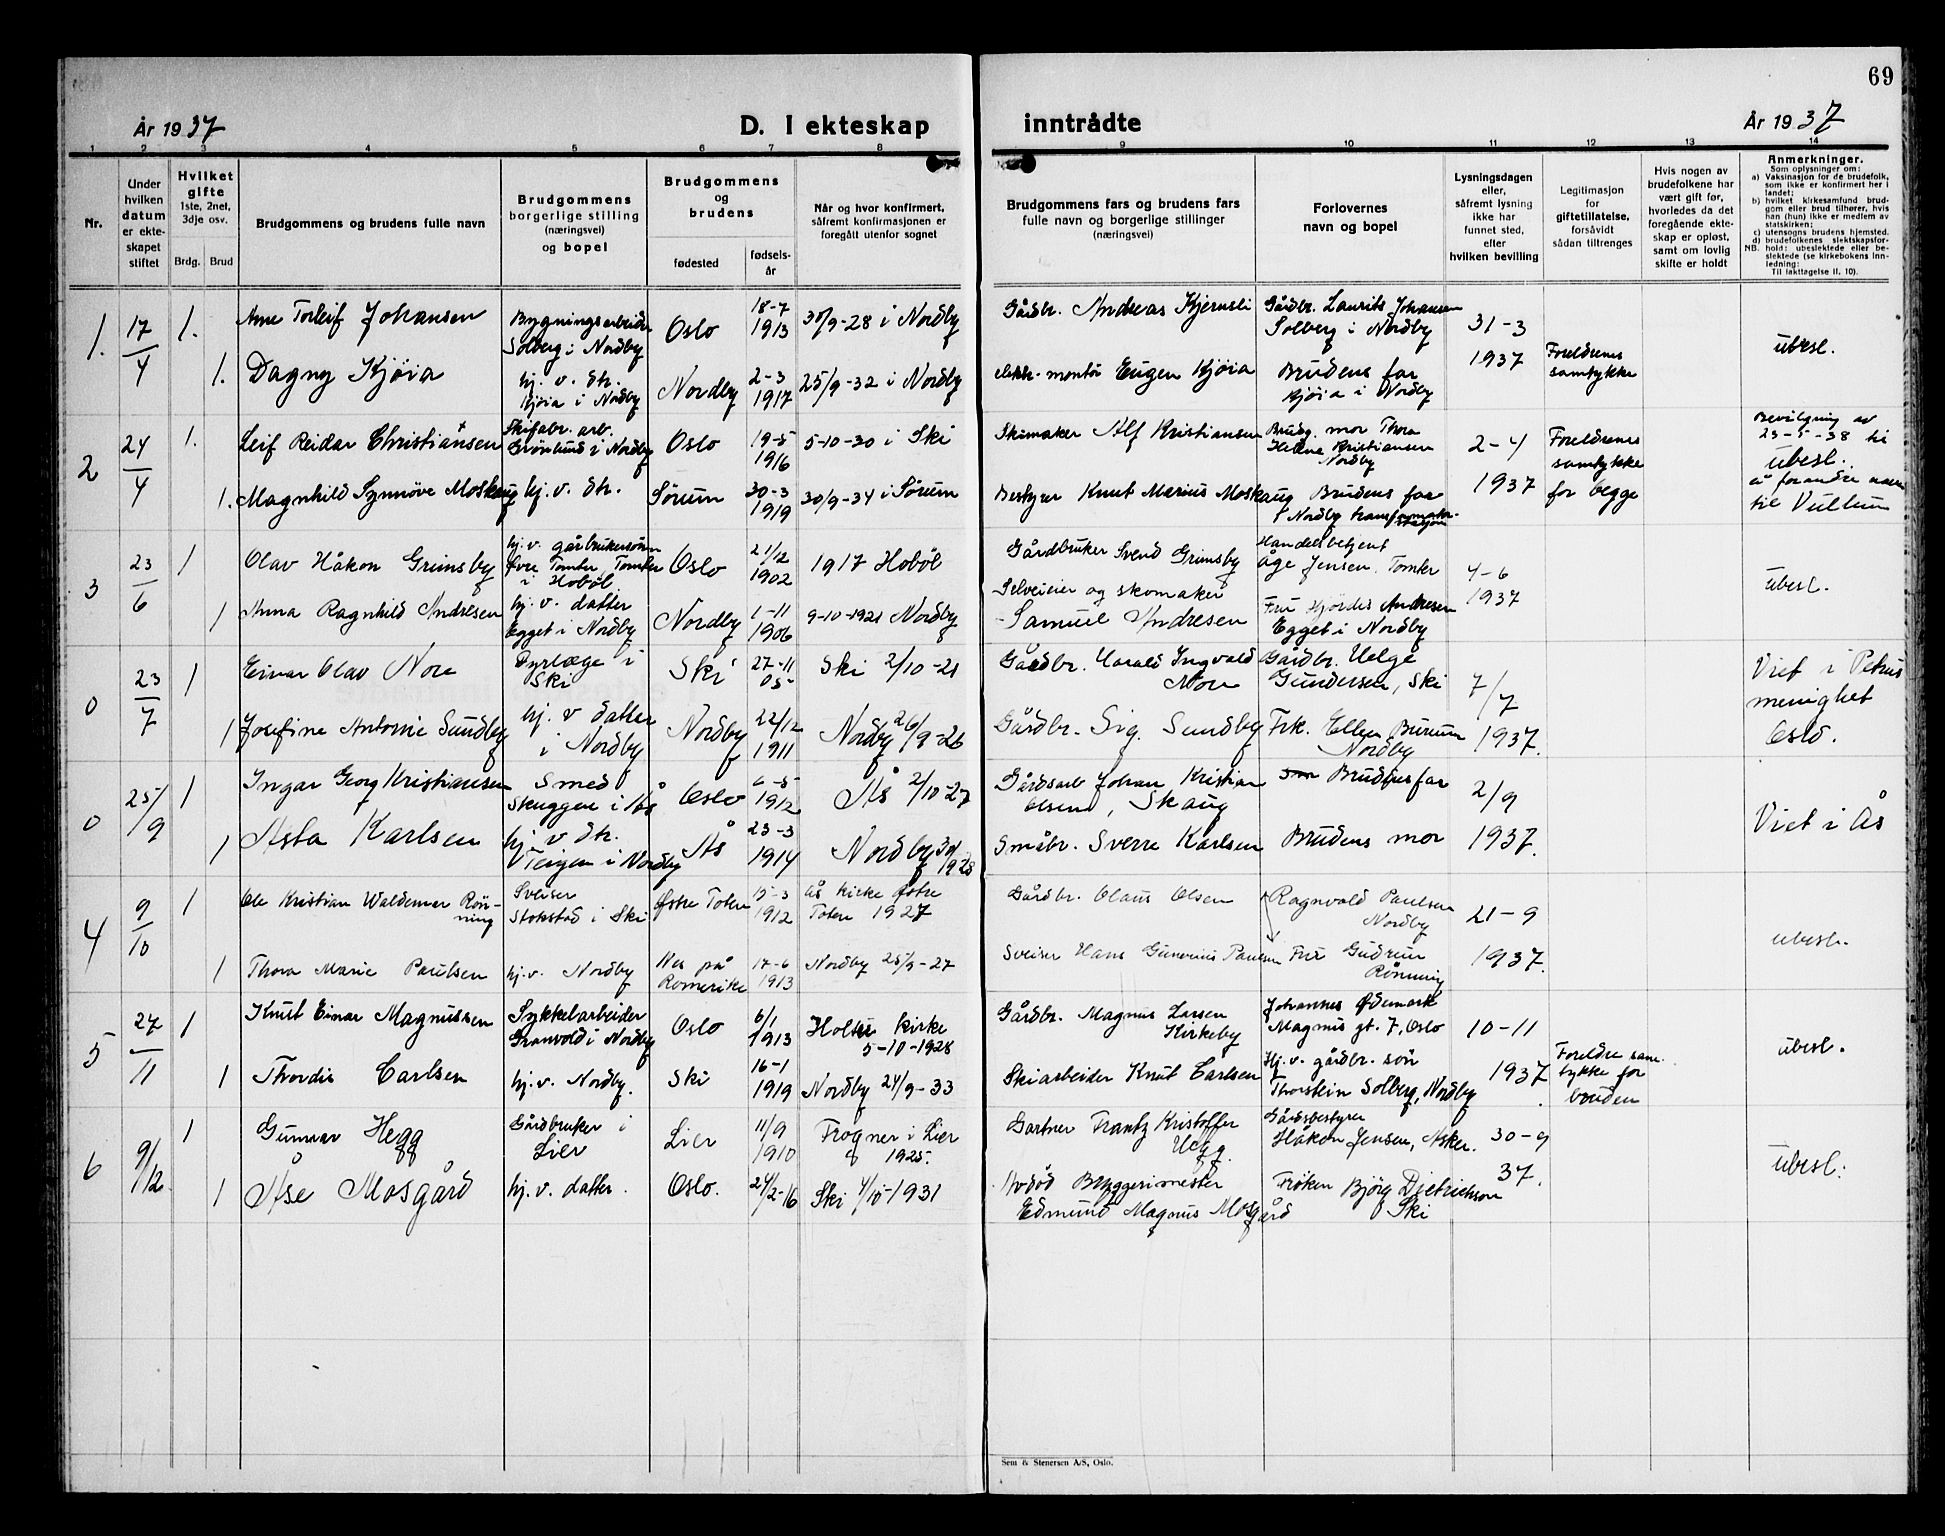 69
År 1937
D. I ekteskap inntrådte
År 1937
1 2 3 4 5 6 7 8 9 10 11 12 13 14
Nr.
Under hvilken datum er ekteskapet stiftet
Hvilket gifte 1ste, 2net, 3dje osv.
Brdg. Brud
Brudgommens og brudens fulle navn
Brudgommens borgerlige stilling (næringsvei) og bopel
Brudgommens og brudens
fødested
fødselsår
Når og hvor konfirmert, såfremt konfirmasjonen er foregått utenfor sognet
Brudgommens fars og brudens fars fulle navn og borgerlige stillinger (næringsvei)
Forlovernes navn og bopel
Lysningsdagen eller, såfremt lysning ikke har funnet sted, efter hvilken bevilling
Legitimasjon for giftetillatelse, forsåvidt sådan tiltrenges
Hvis nogen av brudefolkene har vært gift før, hvorledes da det foregående ekteskap er opløst, samt om lovlig skifte er holdt
Anmerkninger.
Som oplysninger om:
a) Vaksinasjon for de brudefolk, som ikke er konfirmert her i landet;
b) hvilket kirkesamfund brudgom eller brud tilhører, hvis han (hun) ikke er medlem av statskirken;
c) utensogns brudens hjemsted.
d) brudefolkenes slektskapsforhold: ubeslektede eller beslektede (se kirkebokens innledning:
NB. Til iakttagelse II. 10).
1. 17/4 1. Arne Torleif Johansen Bygningsarbeider Solberg i Nordby Oslo 18-7 1913 30/9-28 i Nordby Gårdbr. Andreas Kjernsli Gårdbr. Laurits Johansen Solberg i Nordby 31-3 1937 Foreldrenes samtykke ubesl.
1. Dagny Kjøia hj. v. dtr. Kjøia i Nordby Nordby 2-3 1917 25/9-32 i Nordby elektr. montör Eugen Kjøia Brudens far Kjøia i Nordby
2 24/4 1. Leif Reidar Christiansen Skifabr. arb. Grønlund i Nordby Oslo 19-5 1916 5-10-30 i Ski Skomaker Alf Kristiansen Brudg. mor Thora Helene Kristiansen Nordby 2-4 1937 Foreldrenes samtykke for begge Bevilgning av 23-5-38 til ubesl. å forandre navn til Vullum
1. Magnhild Synnøve Moskaug hj. v. dtr. Sørum 30-3 1919 30/9-34 i Sørum Bestyrer Knut Marius Moskaug Brudens far Nordby transformatorstasjon
3 23/6 1 Olav Håkon Grimsby hj. v. gårbrukersønn Øvre Tomter, Tomter i Hobøl Oslo 21/12 1902 1917 Hobøl Gårdbruker Svend Grimsby Handelsbetjent Åge Jensen, Tomter 4-6 1937 ubesl.
1 Anna Ragnhild Andresen hj. v. datter Egget i Nordby Nordby 1-11 1906 9-10-1921 Nordby Selveier og skomaker Samuel Andresen Fru Hjørdis Andresen Egget i Nordby
0 23/7 1 Einar Olav Nore Dyrlæge i Ski Ski 27-11 05 Ski 2/10-21 Gårdbr. Harald Ingvald Nore Gårdbr. Helge Gundersen, Ski 7/7 1937. Viet i Petrus menighet Oslo.
1 Josefine Antonie Sundby hj. v datter i Nordby Nordby 22/12 1911 Nordby 26/9-26 Gårdbr. Sig. Sundby Frk. Ellen Burum Nordby
0 25/9 1 Ingar Georg Kristiansen Smed Skuggen i Ås Oslo 6-5 1912 Ås 2/10-27 Gårdsarb Johan Kristian Olsen, Skaug Brudens far 2/9 1937. Viet i Ås
1 Asta Karlsen hj. v dtr. Teigen i Nordby Ås 23-3 1914 Nordby 30/9 1928 Småbr. Sverre Karlsen Brudens mor
4 9/10 1 Ole Kristian Waldemar Rönning Sveiser Stokstad i Ski Østre Toten 15-3 1912 Ås kirke Østre Toten 1927 Gårdbr. Olaus Olsen Ragnvald Paulsen Nordby 21-9 1937. ubesl.
1 Thora Marie Paulsen hj. v. Nordby Nes på Romerike 17-6 1913 Nordby 25/9-27 Sveiser Hans Gunerius Paulsen Fru Gudrun Rönning
5 27/11 1 Knut Einar Magnussen Sykkelarbeider Granvold i Nordby Oslo 6/1 1913 Holter kirke 5-10-1928 Gårdbr. Magnus Larsen Kirkeby Johannes Ødemark Magnus gt. 7, Oslo 10-11 1937. Foreldre samtykke for bruden ubesl.
1 Thordis Carlsen hj. v. Nordby. Ski 16-1 1919 Nordby 24/9-33 Skiarbeider Knut Carlsen Hj. v. gårdbr. sön Thorstein Solberg, Nordby
6 9/12. 1 Gunnar Hegg Gårdbruker i Lier Lier 11/9 1910 Frogner i Lier 1925. Gartner Frantz Kristoffer Hegg. Gårdsbestyrer Håkon Jensen, Asker. 30-9 37. ubesl.
1 Åse Mosgård hj. v. datter. Oslo. 24/2-16 Ski 4/10-1931 Avdöd Bryggerimester Edmund Magnus Mosgård Frøken Bjørg Dietrichson Ski
Sem & Stenersen A/S, Oslo.